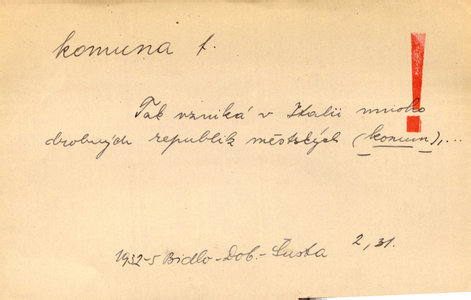 komuna f.
!
Tak vzniká v Italii mnoho
drobných republik městských (komun),...
1932-5 Bidlo-Dob.-Šusta 2, 31.